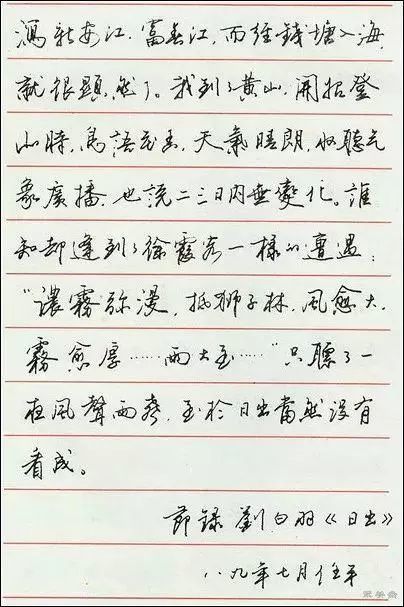 瀉新安江、富春江,而經錢塘入海,
就很顯然了。我到了黃山,開始登
山時,鳥語花香,天氣晴朗,收聽氣
象廣播,也説二三日内無變化。誰
知却逢到了徐霞客一樣的遭遇:
“濃霧弥漫,抵獅子林,風愈大,
霧愈厚……雨大至……”只聽了一
夜風聲雨聲,至於日出當然没有
看成。
節錄 劉白羽《日出》
八九年七月任平